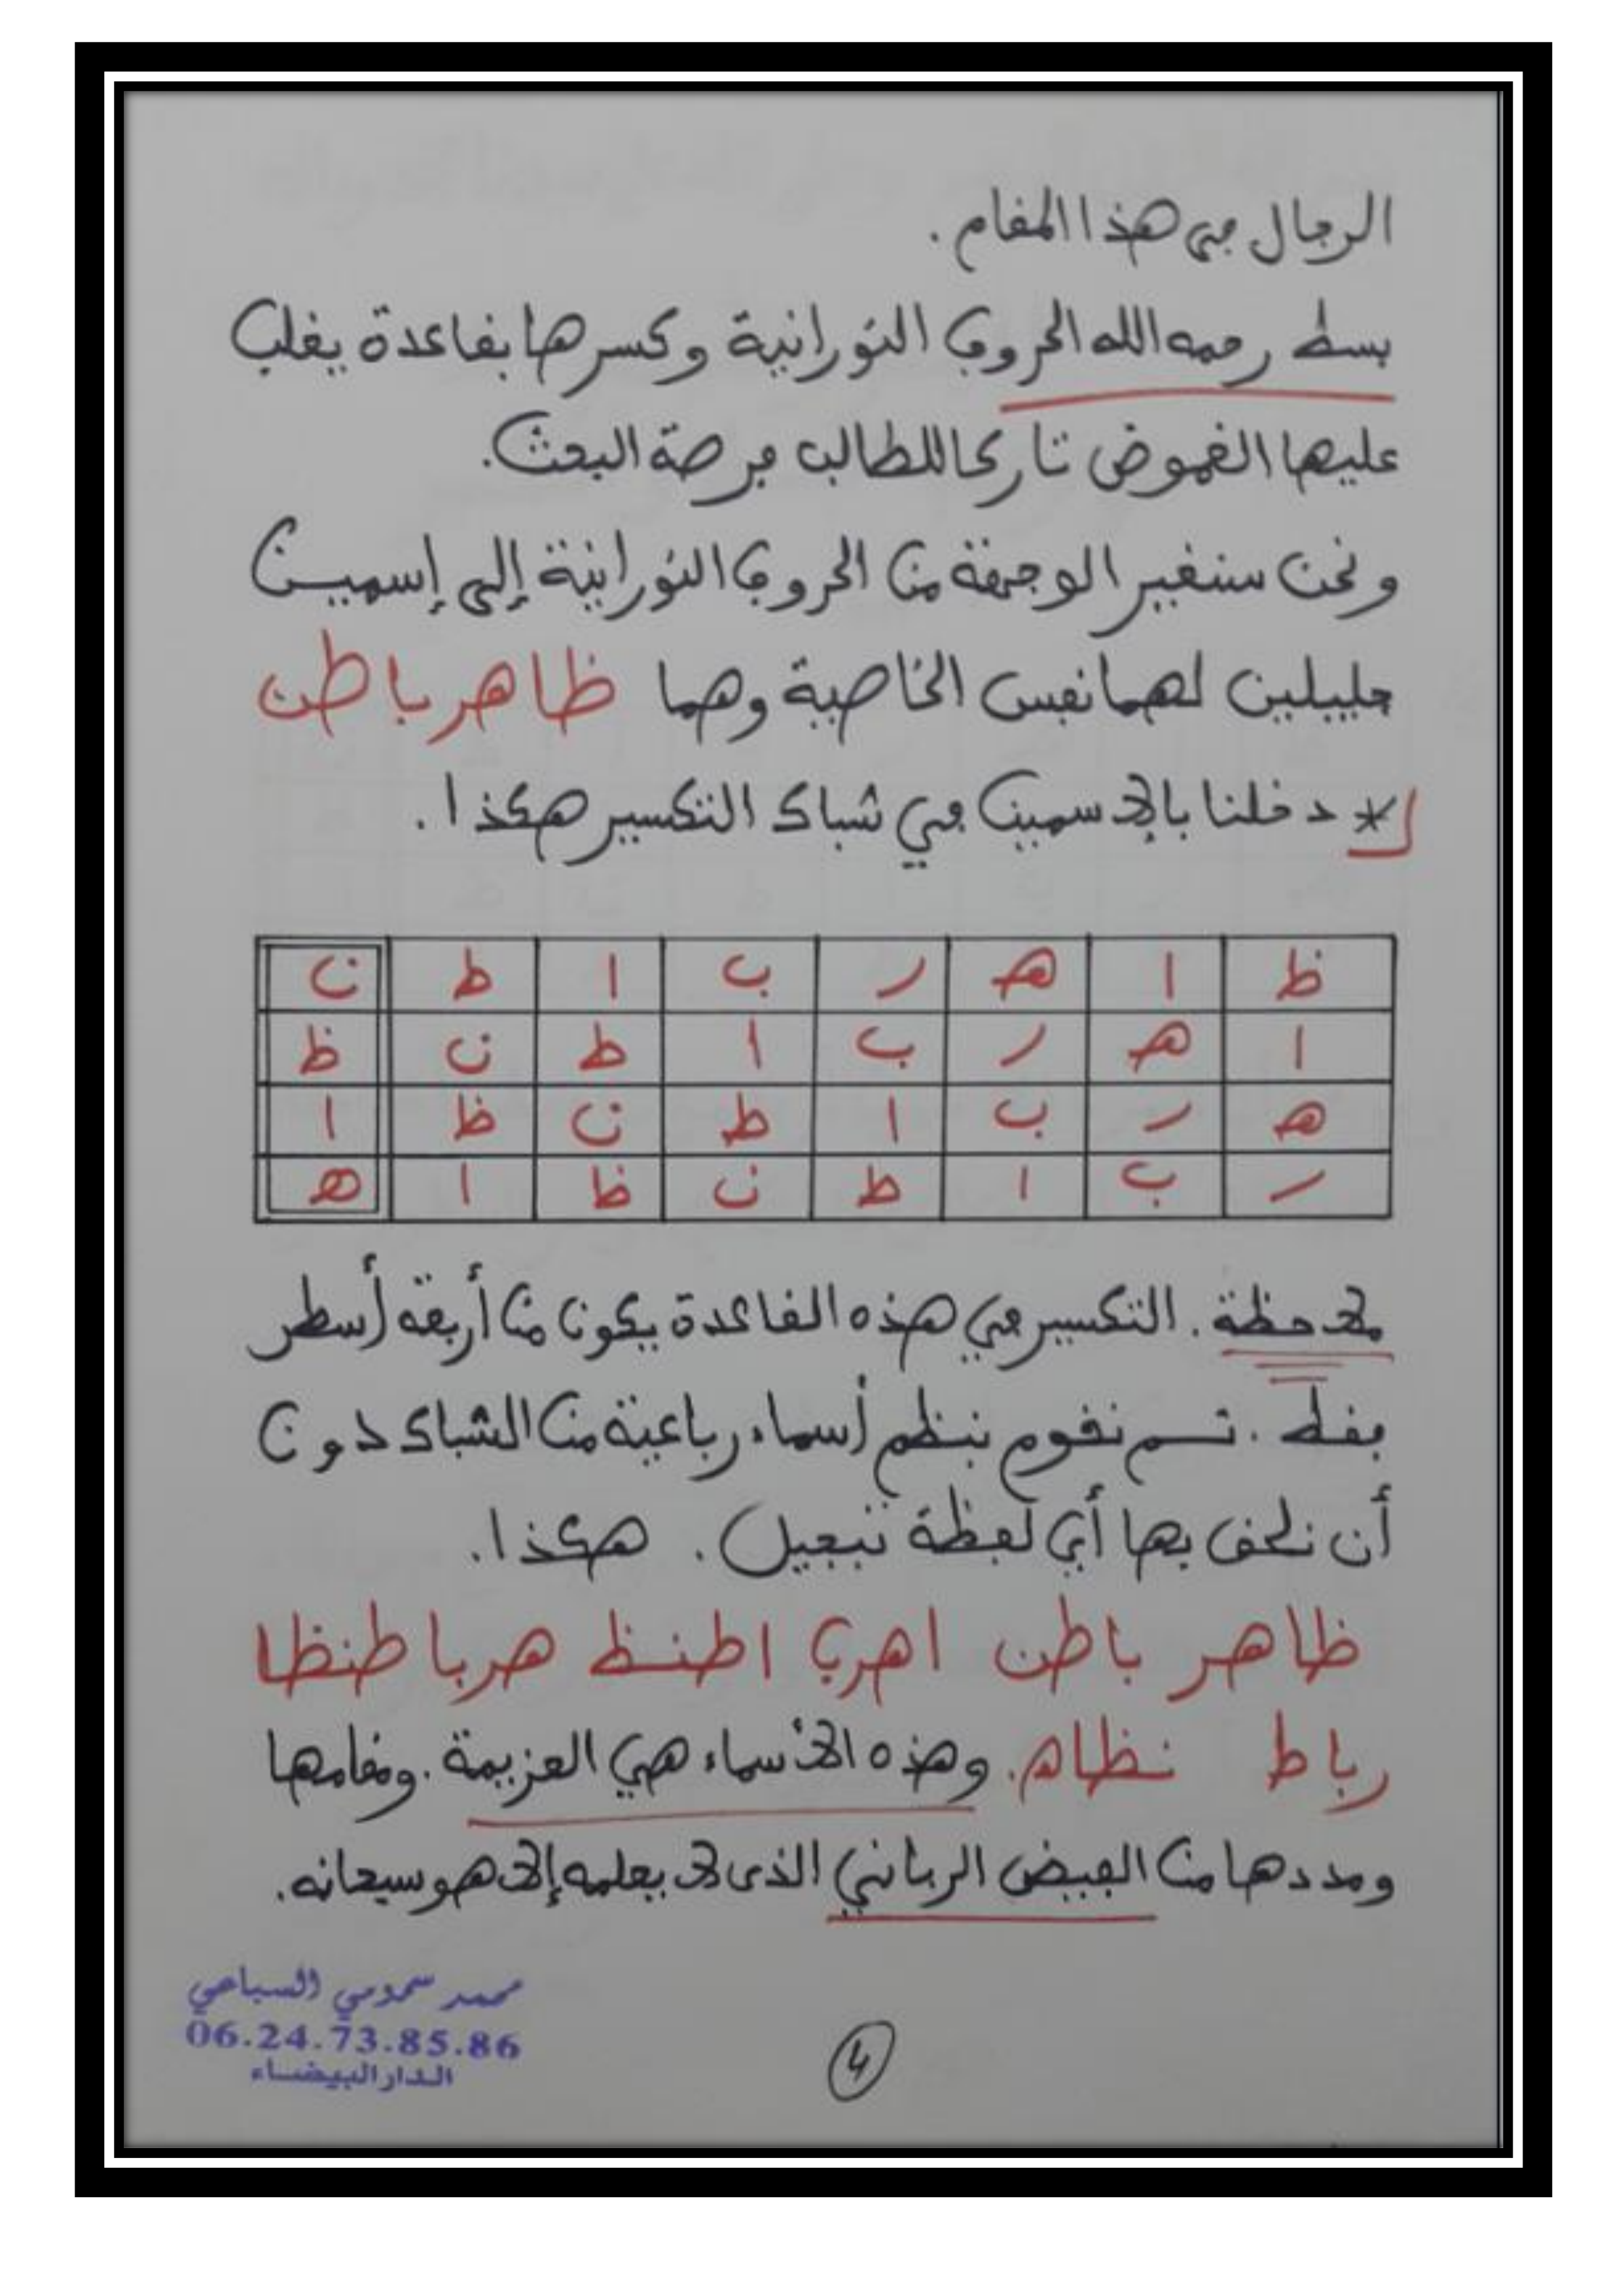 الرجال في هذا المقام .
بسط رحمه الله الحروف النورانية وكسرها بقاعدة يغلب
عليها الغموض تاركا للطالب فرصة البحث.
ونحن سنغير الوجهة من الحروف النورانية إلى إسمين
جليلين لهما نفس الخاصية وهما ظاهر باطن
* دخلنا بالإسمين في شباك التكسير هكذا .
ظ ا هـ ر ب ا ط ن
ا هـ ر ب ا ط ن ظ
هـ ر ب ا ط ن ظ ا
ر ب ا ط ن ظ ا هـ
ملاحظة . التكسير في هذه القاعدة يكون من أربعة أسطر
فقط . تم نقوم بنظم أسماء رباعية من الشباك دون
أن نلحق بها أي لفظة تبجيل . هكذا .
ظاهر باطن اهرب اطنظ هربا طنظا
رباط نظاه . وهذه الأسماء هي العزيمة . ومقامها
ومددها من الفيض الرباني الذى لا يعلمه إلا هو سبحانه .
محمد سمومي السباعي
06.24.73.85.86
الدار البيضاء
4